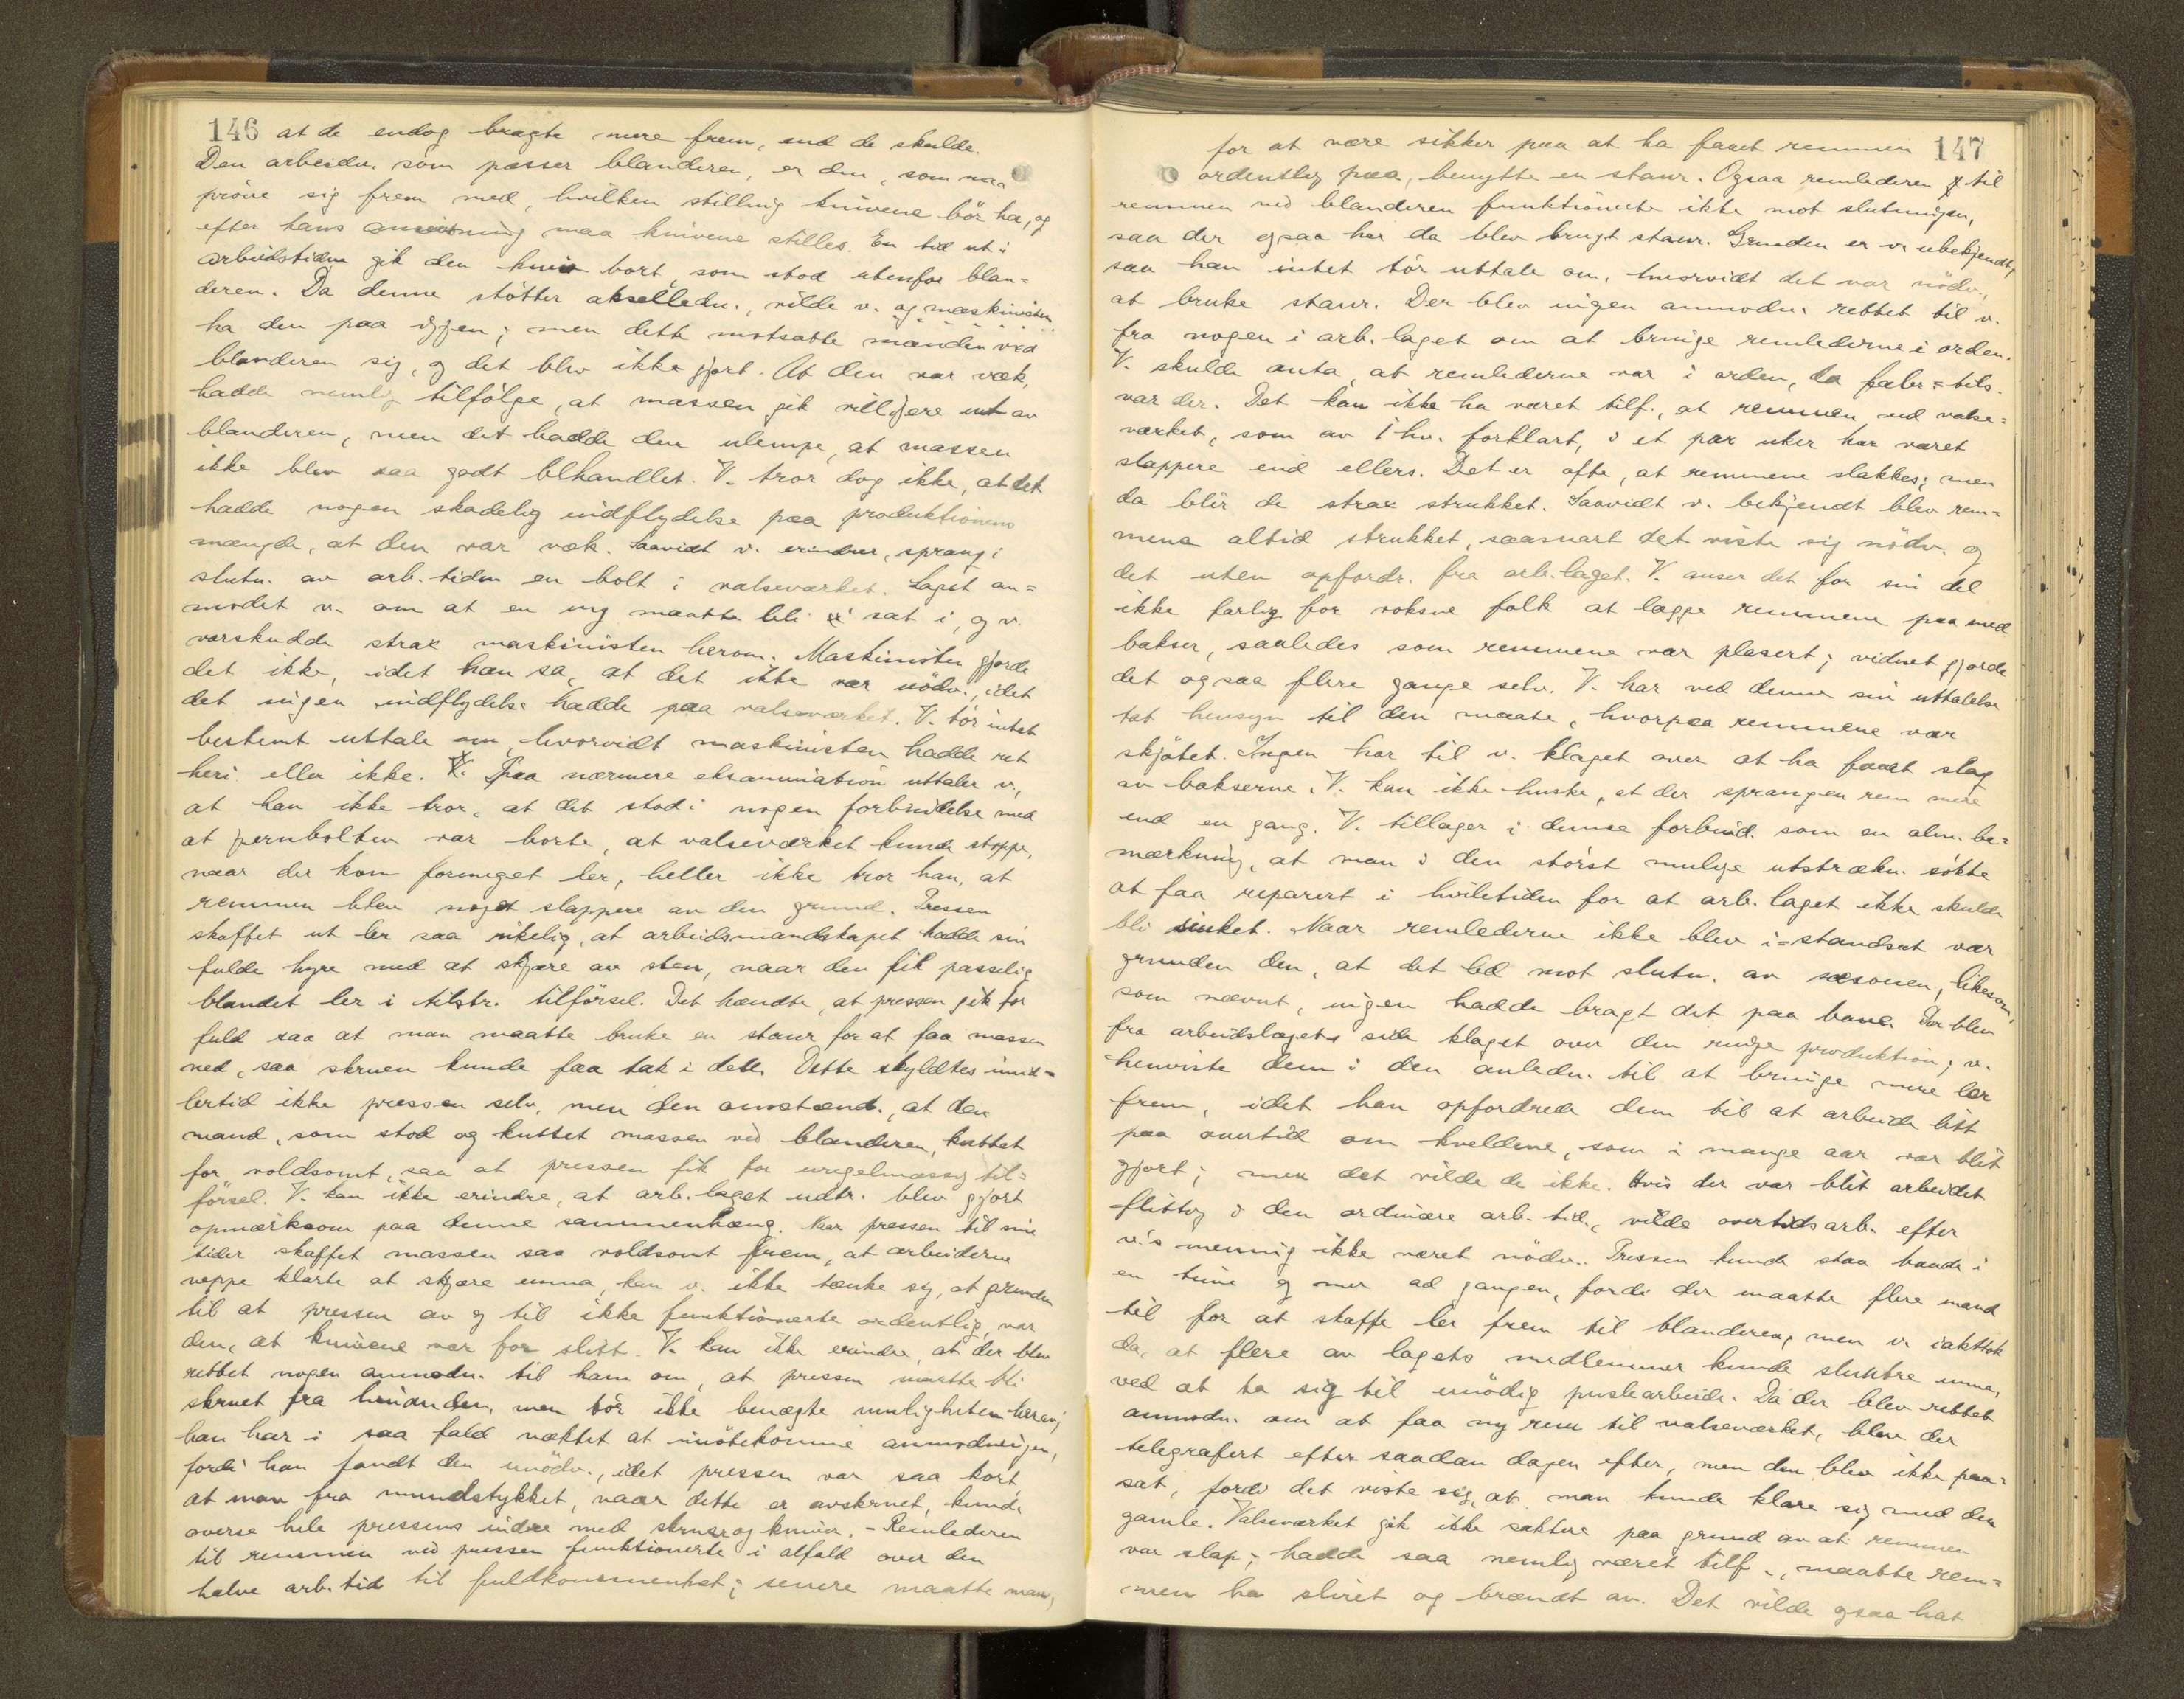 146 at de endog bragte mere frem, end de skulde.
Den arbeider, som passer blanderen, er den, som maa
pröve sig frem med, hvilken stilling knivene bör ha, og
efter hans anvisning maa knivene stilles. En tid ut i
arbeidstiden gik den kniv bort, som stod utenfor blan=
deren. Da denne stötter aksellederen, vilde v. og maskinisten
ha den paa igjen; men dette motsatte manden ved
blanderen sig, og det blev ikke gjort. At den var væk,
hadde nemlig tilfölge, at massen gik villigere ut av
blanderen, men det hadde den ulempe, at massen
ikke blev saa godt behandlet. V. tror dog ikke, at det
hadde nogen skadelig indflydelse paa produktionens
mængde, at den var væk. Saavidt v. erindrer, sprang i
slutn. av arb.tiden en bolt i valseværket. Laget an=
modet v. om at en ny maatte bli sat i, og v.
varskudde strax maskinisten herom. Maskinisten gjorde
det ikke, idet han sa, at det ikke var nödv., idet
det ingen indflydelse hadde paa valseværket. V. tör intet
bestemt uttale om, hvorvidt maskinisten hadde ret
heri eller ikke. V. Paa nærmere eksamination uttaler v.,
at han ikke tror, at det stod i nogen forbindelse med
at jernbolten var borte, at valseværket kunde stoppe,
naar der kom formeget ler, heller ikke tror han, at
remmen blev noget slappere av den grund. Pressen
skaffet ut ler saa rikelig, at arbeidsmandskapet hadde sin
fulde hyre med at skjære av sten, naar den fik passelig
blandet ler i tilstr. tilförsel. Det hændte, at pressen gik for
fuld saa at man maatte bruke en staur for at faa massen
ned, saa skruen kunde faa tak i den. Dette skyldtes imid=
lertid ikke pressen selv, men den omstænd., at den
mand, som stod og kuttet massen ved blanderen, kuttet
for voldsomt, saa at pressen fik for uregelmæssig til=
försel. V. kan ikke erindre, at arb.laget udtr. blev gjort
opmærksom paa denne sammenhæng. Naar pressen til sine
tider skaffet massen saa voldsomt frem, at arbeiderne
neppe klarte at skjære unna, kan v. ikke tænke sig, at grunden
til at pressen av og til ikke funktionerte ordentlig, var
den, at knivene var for slitt. V. kan ikke erindre, at der blev
rettet nogen anmodn. til ham om, at pressen maatte bli
skruet fra hinanden, men tör ikke benægte muligheten herav;
han har i saa fald nektet at imötekomme anmodningen,
fordi han fandt den unödv., idet pressen var saa kort,
at man fra mundstykket, naar dette er avskruet, kunde
overse hele pressens indre med skruer og kniver. – Remlederen
til remmen ved pressen funktionerte i alfald over den
halve arb.tid til fuldkommenhet; senere maatte man,
for at være sikker paa at ha faaet remmen 147
ordentlig paa, benytte en staur. Ogsaa remlederen til
remmen ved blanderen funktionerte ikke mot slutningen,
saa der ogsaa her da blev brugt staur. Grunden er v. ubekjendt,
saa han intet tör uttale om, hvorvidt det var nödv.,
at bruke staur. Der blev ingen anmodn. rettet til v.
fra nogen i arb.laget om at bringe remlederne i orden.
V. skulde anta, at remlederne var i orden, da fabr=tils.
var der. Det kan ikke ha været tilf., at remmen ved valse=
værket, som av 1 hv. forklart, i et par uker har været
slappere end ellers. Det er ofte, at remmene slakkes; men
da blir de strax strukket. Saavidt v. bekjendt blev rem=
mene altid strukket, saasnart det viste sig nödv. og
det uten opfordr. fra arb.laget. V. anser det for sin del
ikke farlig for voksne folk at lægge remmene paa med
bakser, saaledes som remmene var plasert; vidnet gjorde
det ogsaa flere gange selv. V. har ved denne sin uttalelse
tat hensyn til den maate, hvorpaa remmene var
skjötet. Ingen har til v. klaget over at ha faaet slag
av bakserne. V. kan ikke huske, at der sprang en rem mere
end en gang. V. tillager i denne forbind. som en alm. be=
mærkning, at man i den störst mulige utstrækn. sökte
at faa reparert i hviletiden for at arb.laget ikke skulde
bli sinket. Naar remlederne ikke blev i=standsat var
grunden den, at det led mot slutn. av sæsonen, likesom,
som nævnt, ingen hadde bragt det paa bane. Der blev
fra arbeidslagets side klaget over den ringe produktion; v.
henviste dem i den anledn. til at bringe mere ler
frem, idet han opfordrede dem til at arbeide litt
paa overtid om kveldene, som i mange aar var blit
gjort; men det vilde de ikke. Hvis der var blit arbeidet
flittig i den ordinære arb.tid, vilde overtidsarb. efter
v.'s mening ikke været nödv.. Pressen kunde staa baade i
en time og mer ad gangen, fordi der maatte flere mand
til for at skaffe ler frem til blanderen, men v. iakttok
da, at flere av lagets medlemmer kunde sluntre unna,
ved at ta sig til unödig puslearbeide. Da der blev rettet
anmodn. om at faa ny rem til valseværket, blev der
telegrafert efter saadan dagen efter, men den blev ikke paa=
sat, fordi det viste sig, at man kunde klare sig med den
gamle. Valseværket gik ikke saktere paa grund av at remmen
var slap; hadde saa nemlig været tilf., maatte rem=
men ha sluret og brændt av. Det vilde ogsaa hat